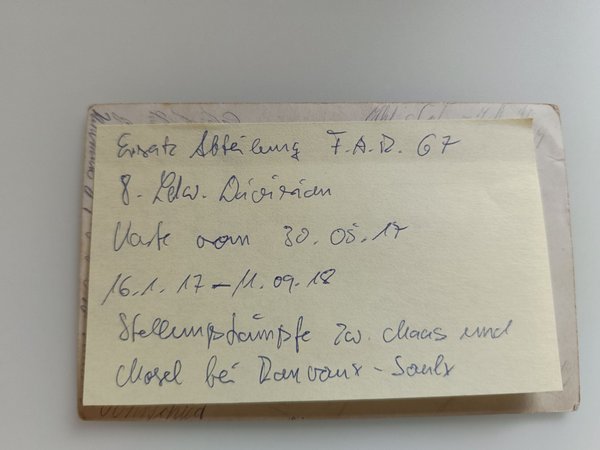 Ersatz Abteilung F.A.R. 67
8. Ldw. Division
Karte vom 30.05.17
16.1.17 – 11.09.18
Stellungskämpfe zw. Maas und
Mosel bei Ranvaux - Saulx